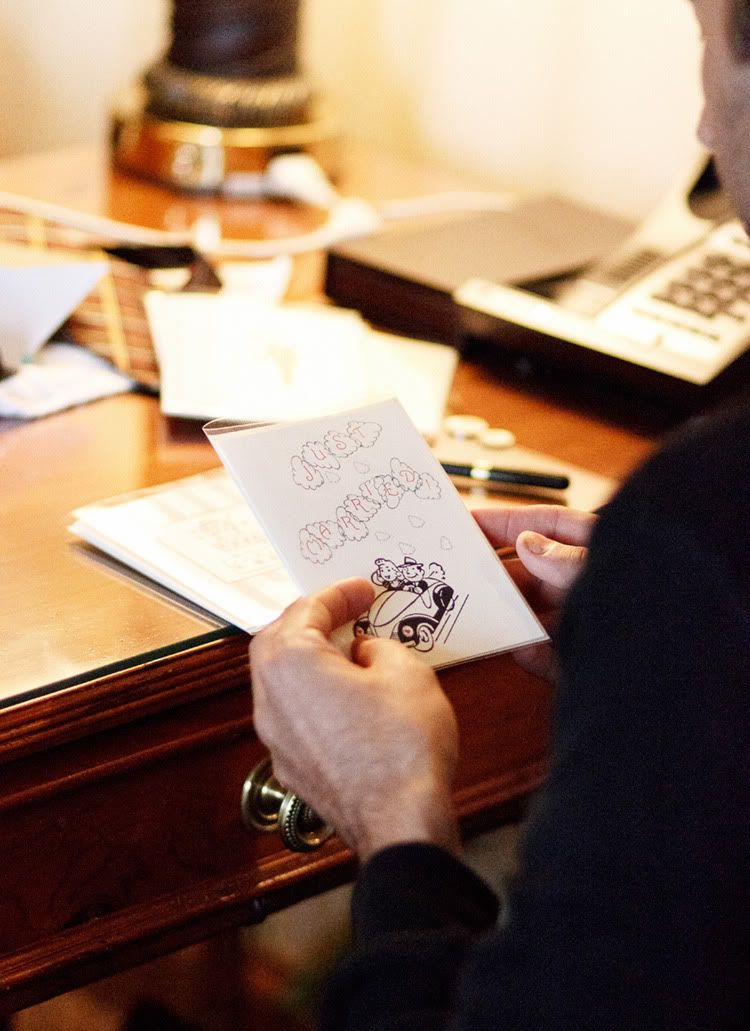 JUST
MARRIED!